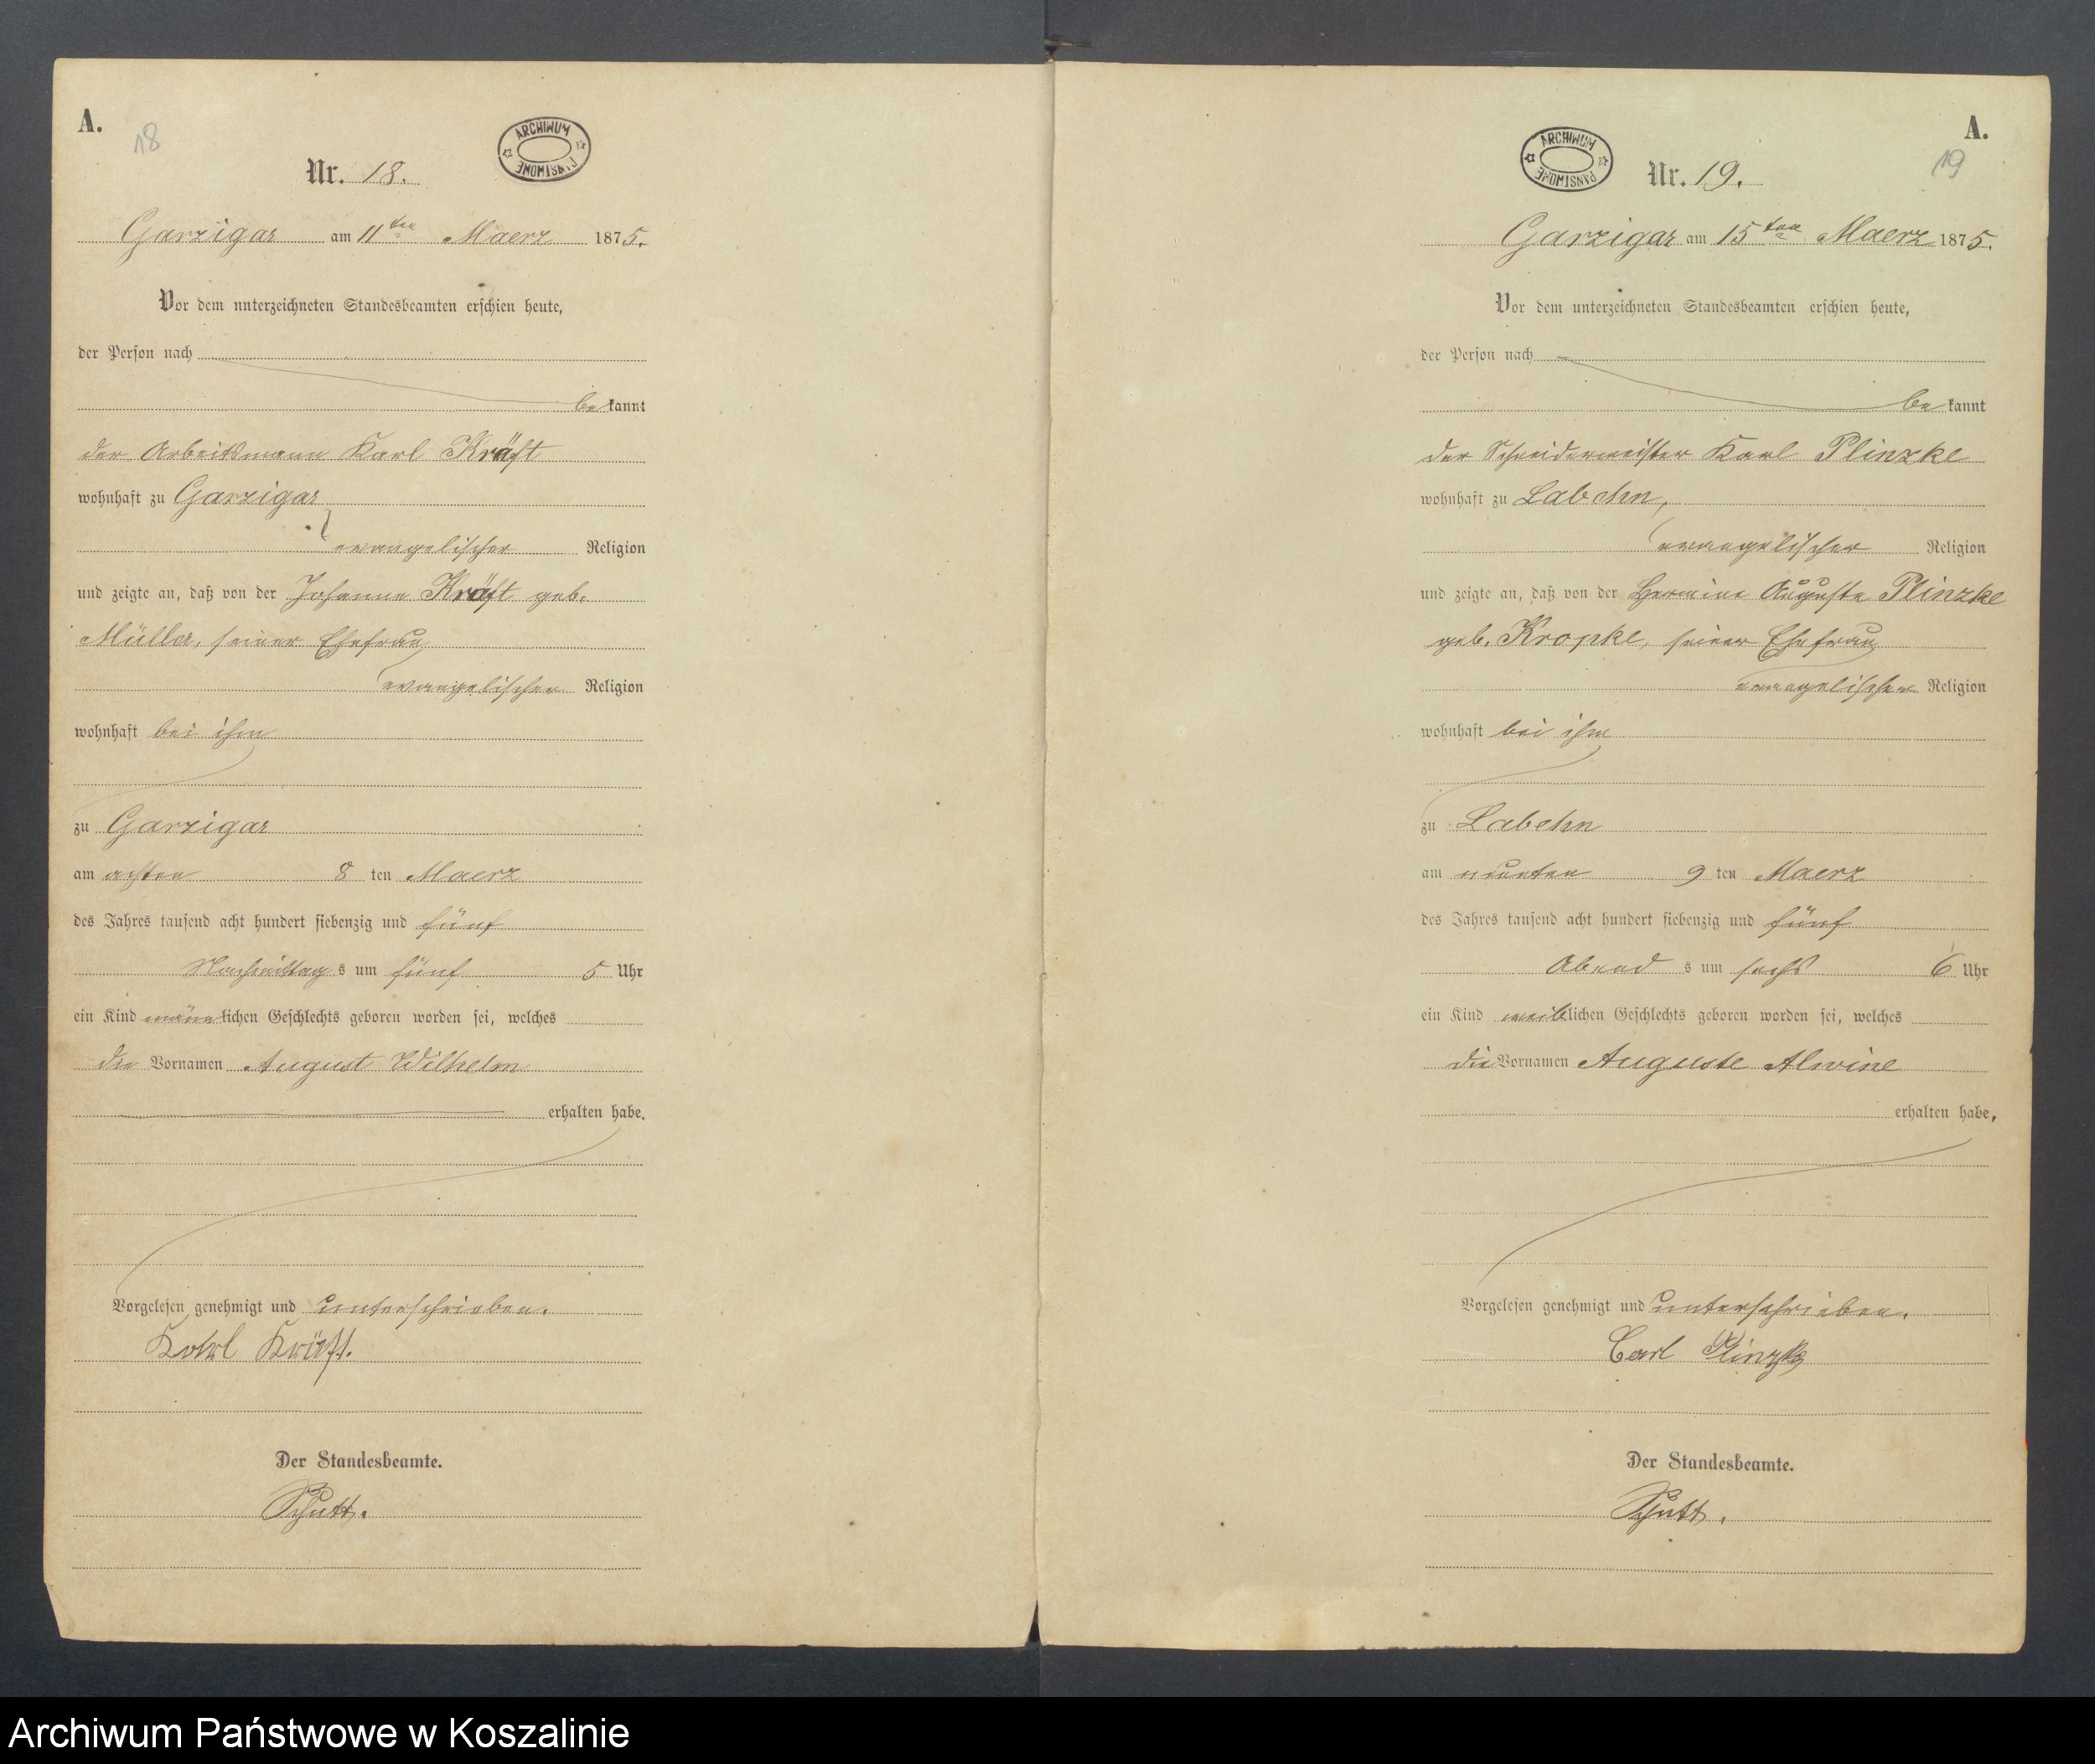 A.
18
ARCHIWUM PAŃSTWOWE
Nr. 18.
Garzigar am 11ten Maerz 1875.
Vor dem unterzeichneten Standesbeamten erschien heute,
der Person nach
bekannt
der Arbeitsmann Karl Kräft
wohnhaft zu Garzigar
evangelischer Religion
und zeigte an, daß von der Johanne Kräft geb.
Müller, seiner Ehefrau
evangelischer Religion
wohnhaft bei ihm
zu Garzigar
am achten 8 ten Maerz
des Jahres tausend acht hundert siebenzig und fünf
Nachmittags um fünf 5 Uhr
ein Kind männlichen Geschlechts geboren worden sei, welches
die Vornamen August Wilhelm
erhalten habe.
Vorgelesen genehmigt und unterschrieben.
Karl Kräft.
Der Standesbeamte.
Schutt.
A.
19
ARCHIWUM PAŃSTWOWE
Nr. 19.
Garzigar am 15ten Maerz 1875.
Vor dem unterzeichneten Standesbeamten erschien heute,
der Person nach
bekannt
der Schneidermeister Karl Plinzke
wohnhaft zu Labehn,
evangelischer Religion
und zeigte an, daß von der Hermine Auguste Plinzke
geb. Kropke, seiner Ehefrau
evangelischer Religion
wohnhaft bei ihm
zu Labehn
am neunten 9 ten Maerz
des Jahres tausend acht hundert siebenzig und fünf
Abends um sechs 6 Uhr
ein Kind weiblichen Geschlechts geboren worden sei, welches
die Vornamen Auguste Alwine
erhalten habe.
Vorgelesen genehmigt und unterschrieben.
Carl Plinzke
Der Standesbeamte.
Schutt.
Archiwum Państwowe w Koszalinie